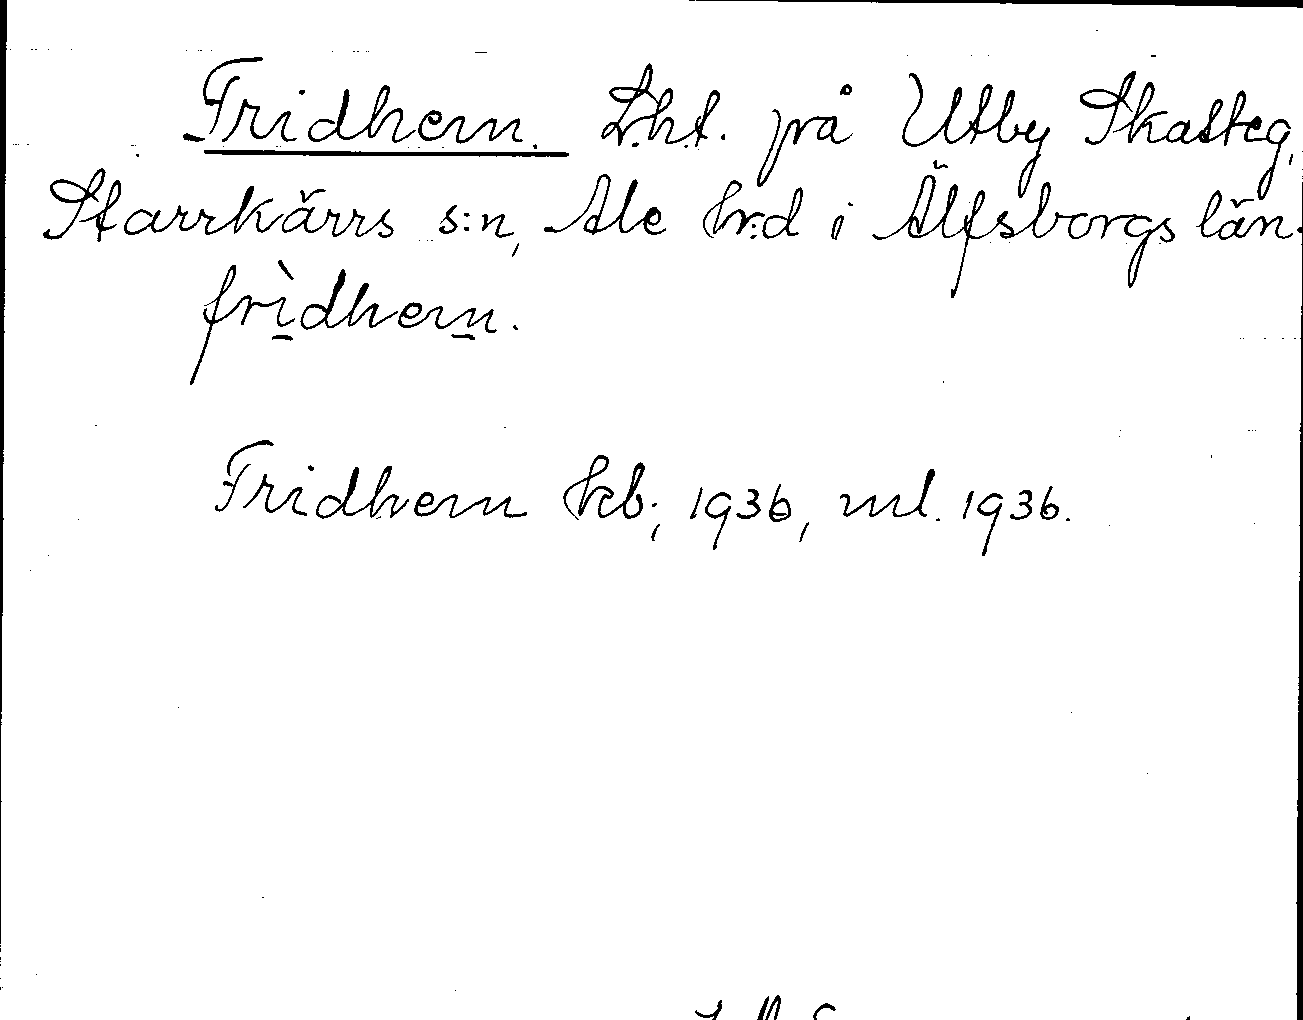 Fridhem. Lht. på Utby Skatteg,
Starrkärrs s:n, Ale hrd i Älfsborgs län.
frìdhem.
Fridhem kb; 1936, ml. 1936.